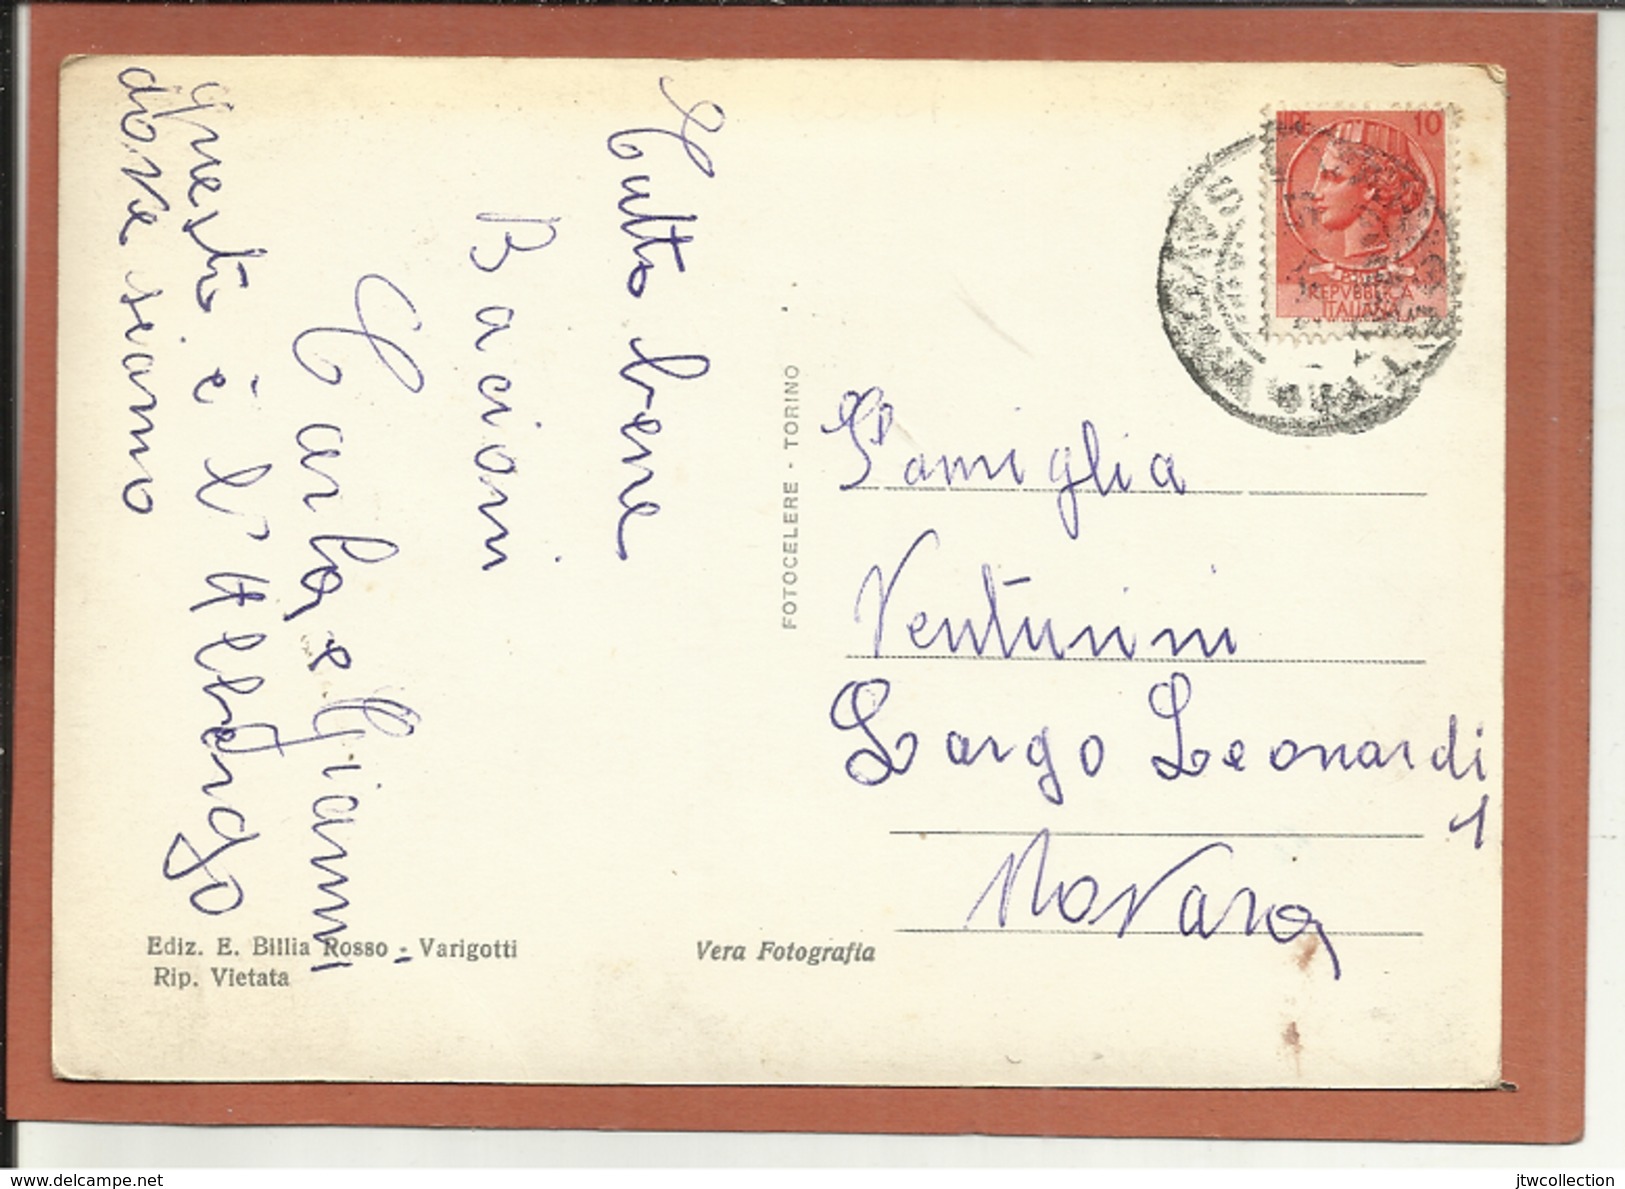 Tutto bene
Bacioni
Carla e Gianni
questo è l'Albergo
dove siamo
FOTOCELERE - TORINO
LIRE 10
REPVBBLICA
ITALIANA
Famiglia
Venturini
Largo Leonardi
1
Novara
Ediz. E. Billia Rosso - Varigotti
Rip. Vietata
Vera Fotografia
www.delcampe.net
jtwcollection